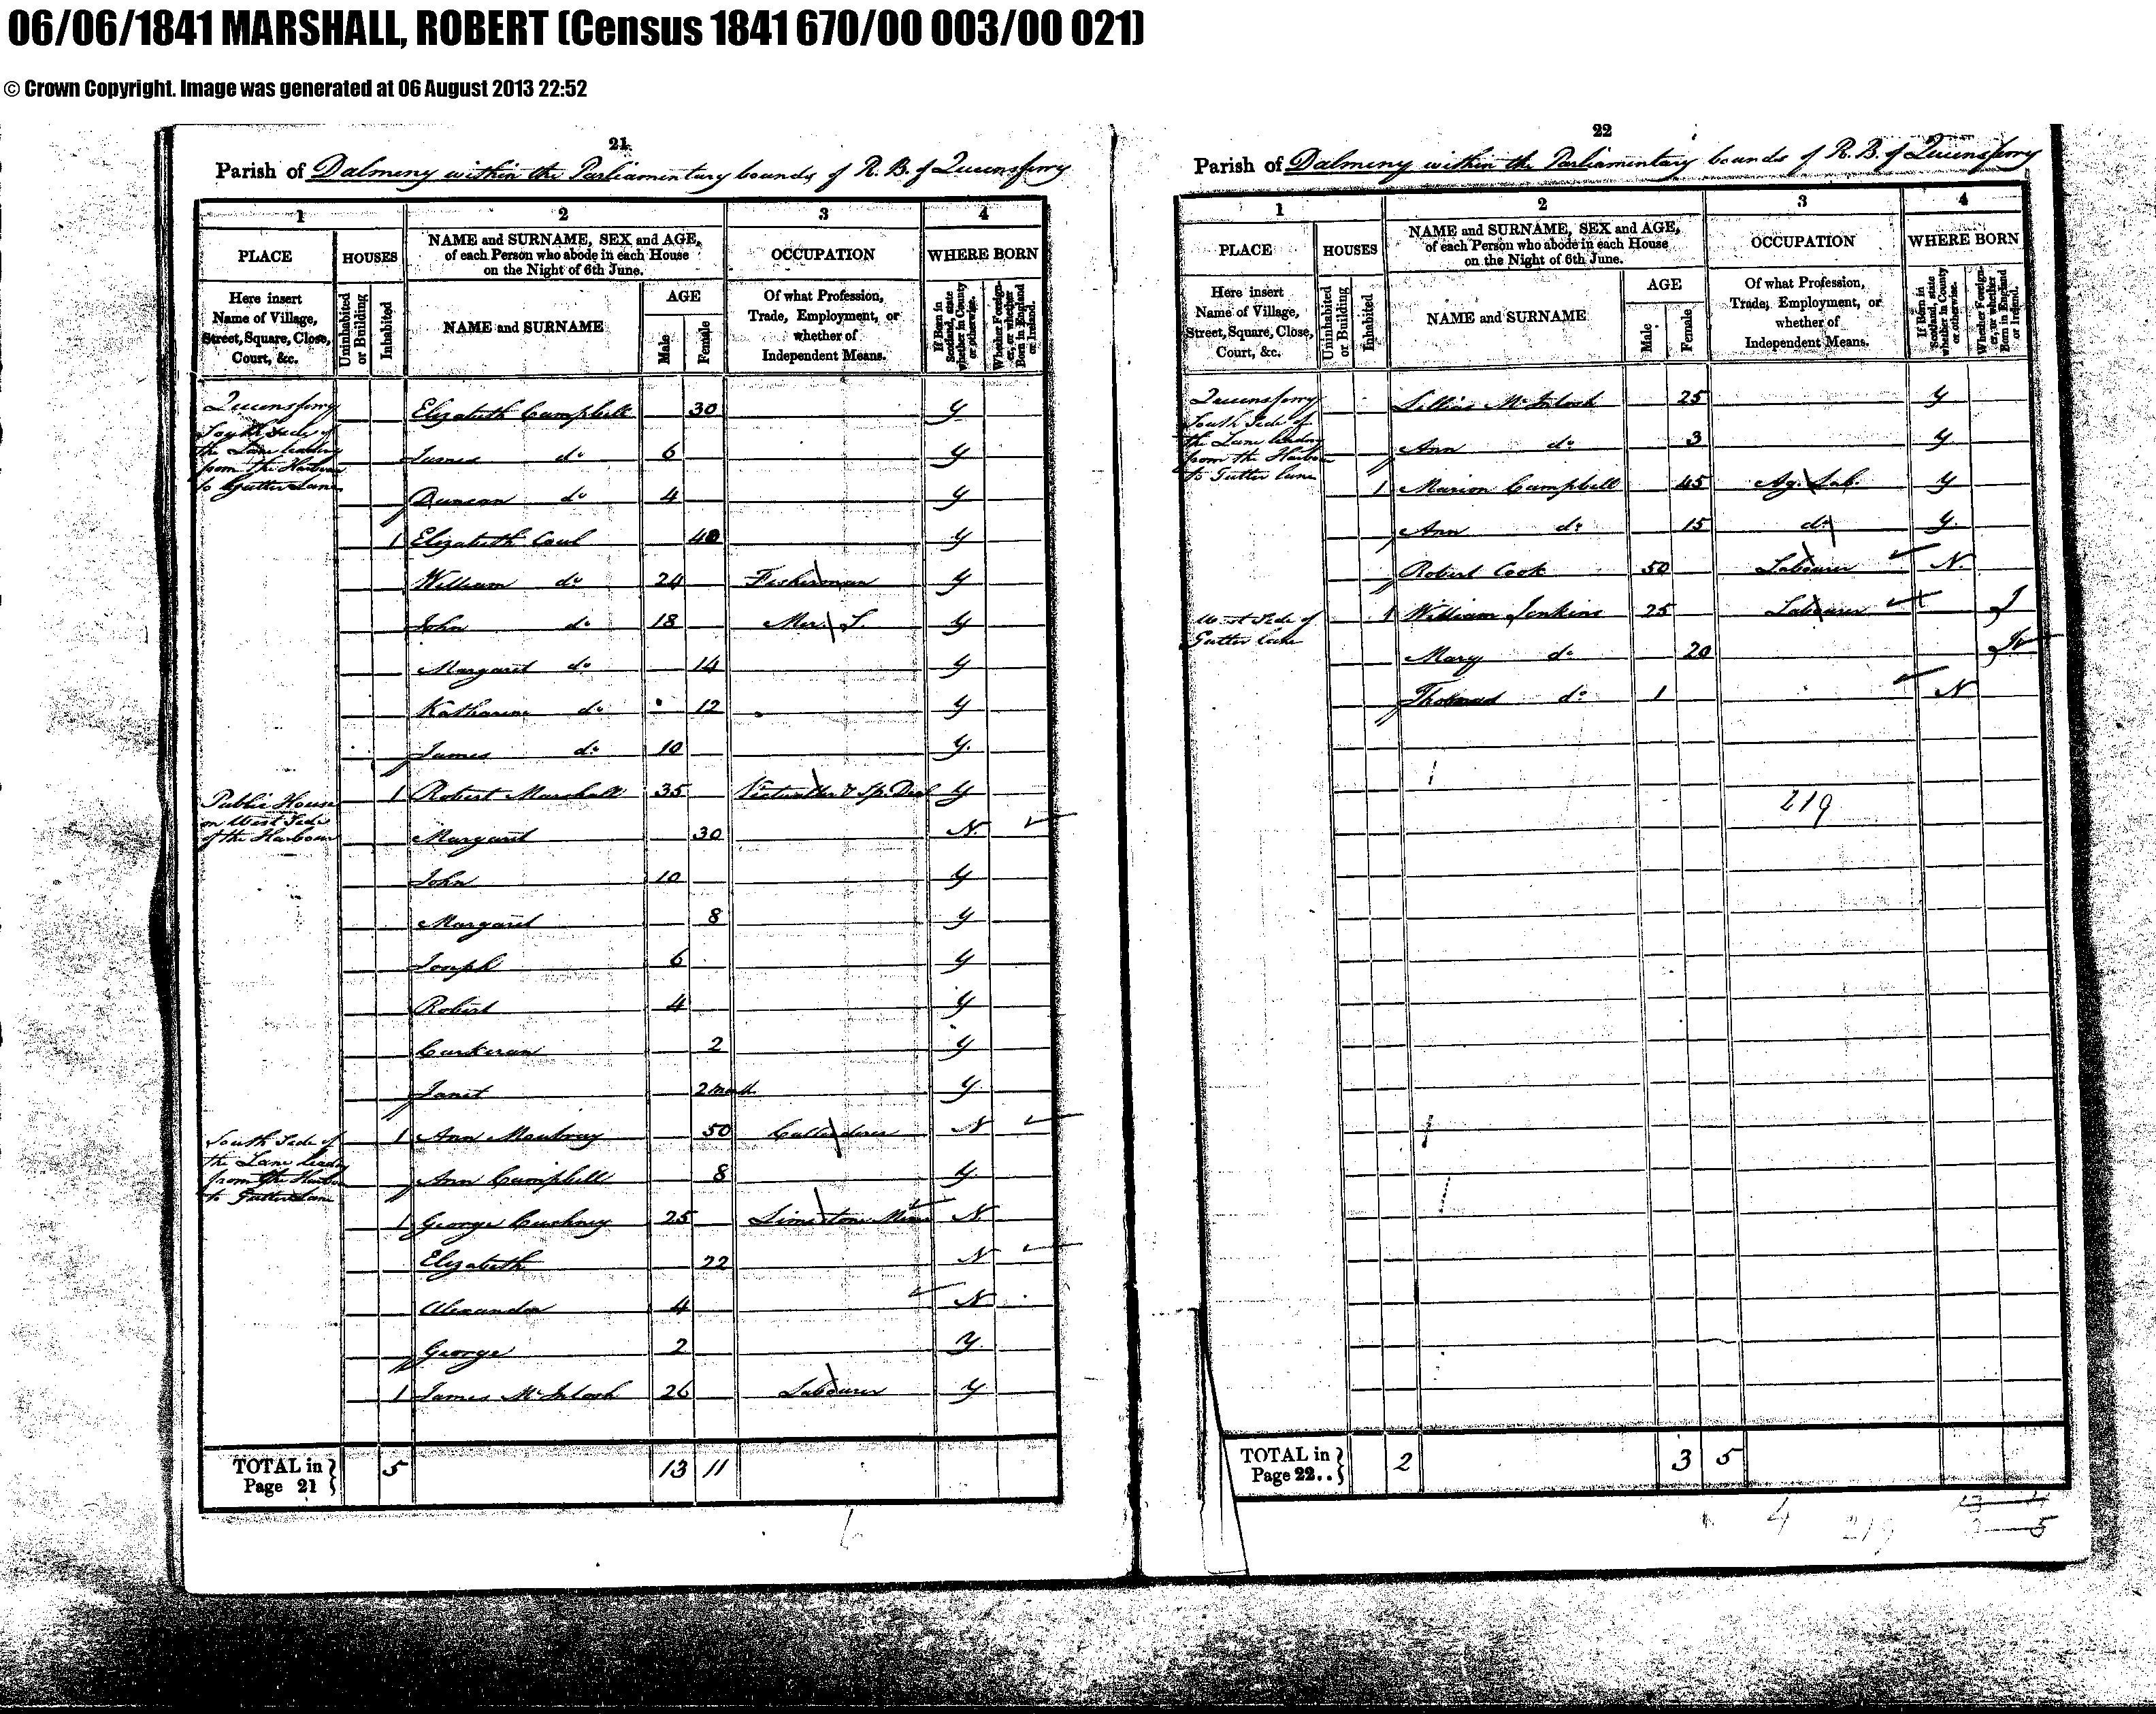 06/06/1841 MARSHALL, ROBERT (Census 1841 670/00 003/00 021)
© Crown Copyright. Image was generated at 06 August 2013 22:52
21
Parish of Dalmeny within the Parliamentary bounds of R. B. of Queensferry
1 2 3 4
PLACE HOUSES NAME and SURNAME, SEX and AGE, of each Person who abode in each House on the Night of 6th June. OCCUPATION WHERE BORN
Here insert Name of Village, Street, Square, Close, Court, &c. Uninhabited or Building Inhabited NAME and SURNAME AGE Male Female Of what Profession, Trade, Employment, or whether of Independent Means. If Born in Scotland, state whether in County or otherwise. Whether Foreigner, or whether Born in England or Ireland.
Queensferry South Side of the Lane leading from the Harbour to Gutter Lane
Elizabeth Campbell 30 Y
James do 6 Y
Duncan do 4 Y
1 Elizabeth Caul 40 Y
William do 24 Fisherman Y
John do 18 Mer. S. Y
Margaret do 14 Y
Katharine do 12 Y
James do 10 Y.
Public House on West Side of the Harbour
1 Robert Marshall 35 Victualler & Sp. Deal Y
Margaret 30 N
John 10 Y
Margaret 8 Y
Joseph 6 Y
Robert 4 Y
2 Y
Janet 2 month Y
South Side of the Lane leadg from the Harbour to Gutter Lane
1 Ann Moubray 50 N
Ann Campbell 8 Y
1 George Cushney 25 Limestone Miner N
Elizabeth 22 N
Alexander 4 N
George 2 Y.
1 James McIntosh 26 Labourer Y
TOTAL in Page 21 } 5 13 11
22
Parish of Dalmeny within the Parliamentary bounds of R. B. of Queensferry
1 2 3 4
PLACE HOUSES NAME and SURNAME, SEX and AGE, of each Person who abode in each House on the Night of 6th June. OCCUPATION WHERE BORN
Here insert Name of Village, Street, Square, Close, Court, &c. Uninhabited or Building Inhabited NAME and SURNAME AGE Male Female Of what Profession, Trade, Employment, or whether of Independent Means. If Born in Scotland, state whether in County or otherwise. Whether Foreigner, or whether Born in England or Ireland.
Queensferry South Side of the Lane leading from the Harbour to Gutter lane
Lillias McIntosh 25 Y
Ann do 3 Y
1 Marion Campbell 45 Ag. Lab. Y
Ann do 15 do Y.
Robert Cook 50 Labourer N.
West Side of Gutter lane
1 William Jenkins 25 Labourer I
Mary do 20
Thomas do 1 N
219
TOTAL in Page 22.. } 2 3 5
4 219 13 11
3 5